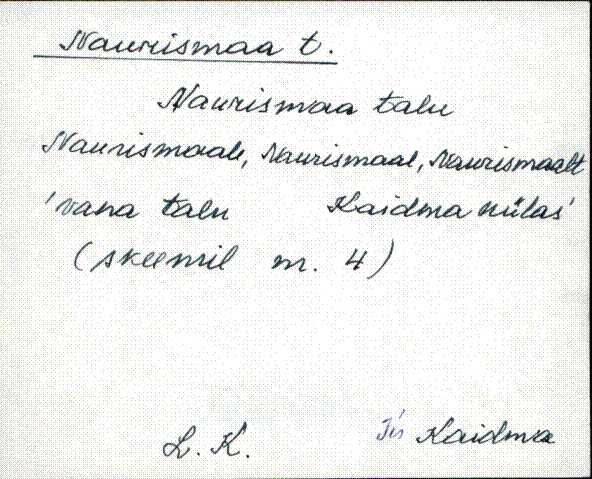 Naurismaa t.
Naurismaa talu
Naurismaale, Naurismaal, Naurismaalt
'vana talu Kaidma külas'
(skeemil nr. 4)
L. K. Jis Kaidma